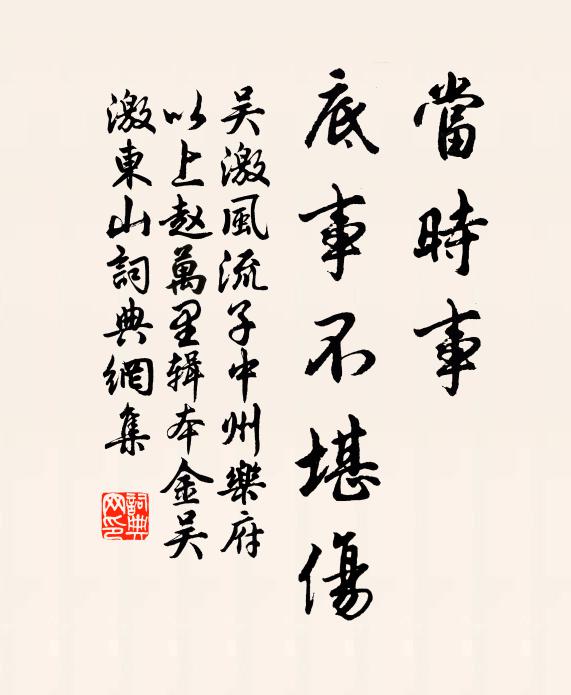 當時事
底事不堪傷
吳激風流子中州樂府
以上赵萬里輯本金吴
激東山詞典網集
詞典
网印